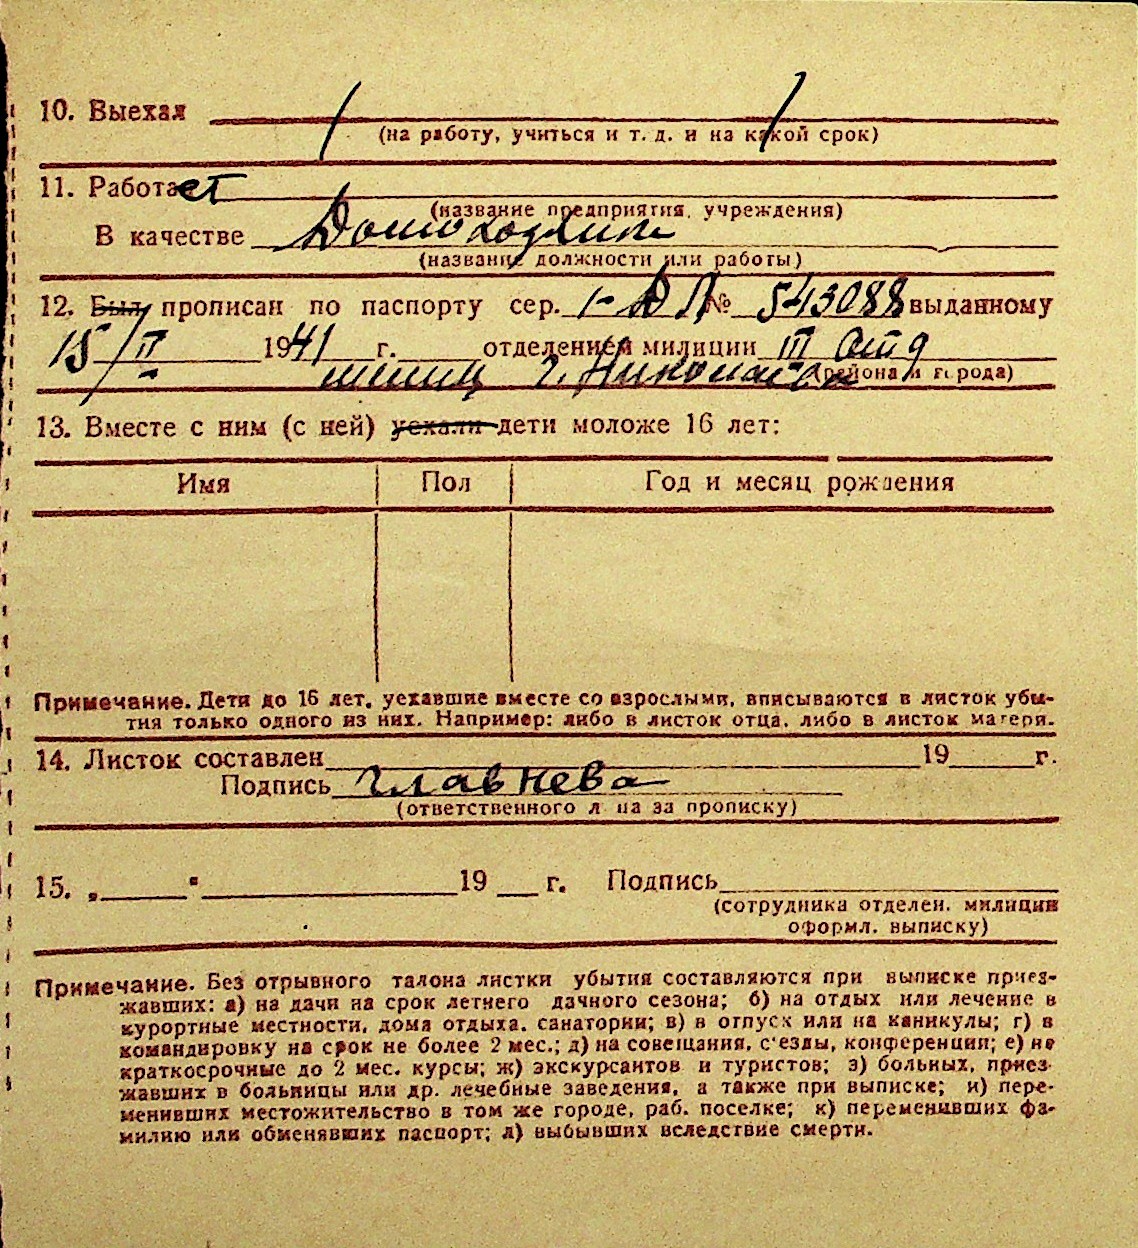 10. Выехал
(на работу, учиться и т. д. и на какой срок)
11. Работает
(название предприятия, учреждения)
В качестве Домохозяйка
(название должности или работы)
12. Был прописан по паспорту сер. I-ДЛ № 543088 выданному
15/II 1941 г. отделением милиции III отд
милиц г. Николаева (района и города)
13. Вместе с ним (с ней) уехали дети моложе 16 лет:
Имя Пол Год и месяц рождения
Примечание. Дети до 16 лет, уехавшие вместе со взрослыми, вписываются в листок убы-
тия только одного из них. Например: либо в листок отца, либо в листок матери.
14. Листок составлен 19 г.
Подпись Главнева
(ответственного лица за прописку)
15. „ " 19 г. Подпись
(сотрудника отделен. милиции
оформл. выписку)
Примечание. Без отрывного талона листки убытия составляются при выписке приез-
жавших: а) на дачи на срок летнего дачного сезона; б) на отдых или лечение в
курортные местности, дома отдыха, санатории; в) в отпуск или на каникулы; г) в
командировку на срок не более 2 мес.; д) на совещания, с'езды, конференции; е) на
краткосрочные до 2 мес. курсы; ж) экскурсантов и туристов; з) больных, приез-
жавших в больницы или др. лечебные заведения, а также при выписке; и) пере-
менивших местожительство в том же городе, раб. поселке; к) переменивших фа-
милию или обменявших паспорт; л) выбывших вследствие смерти.